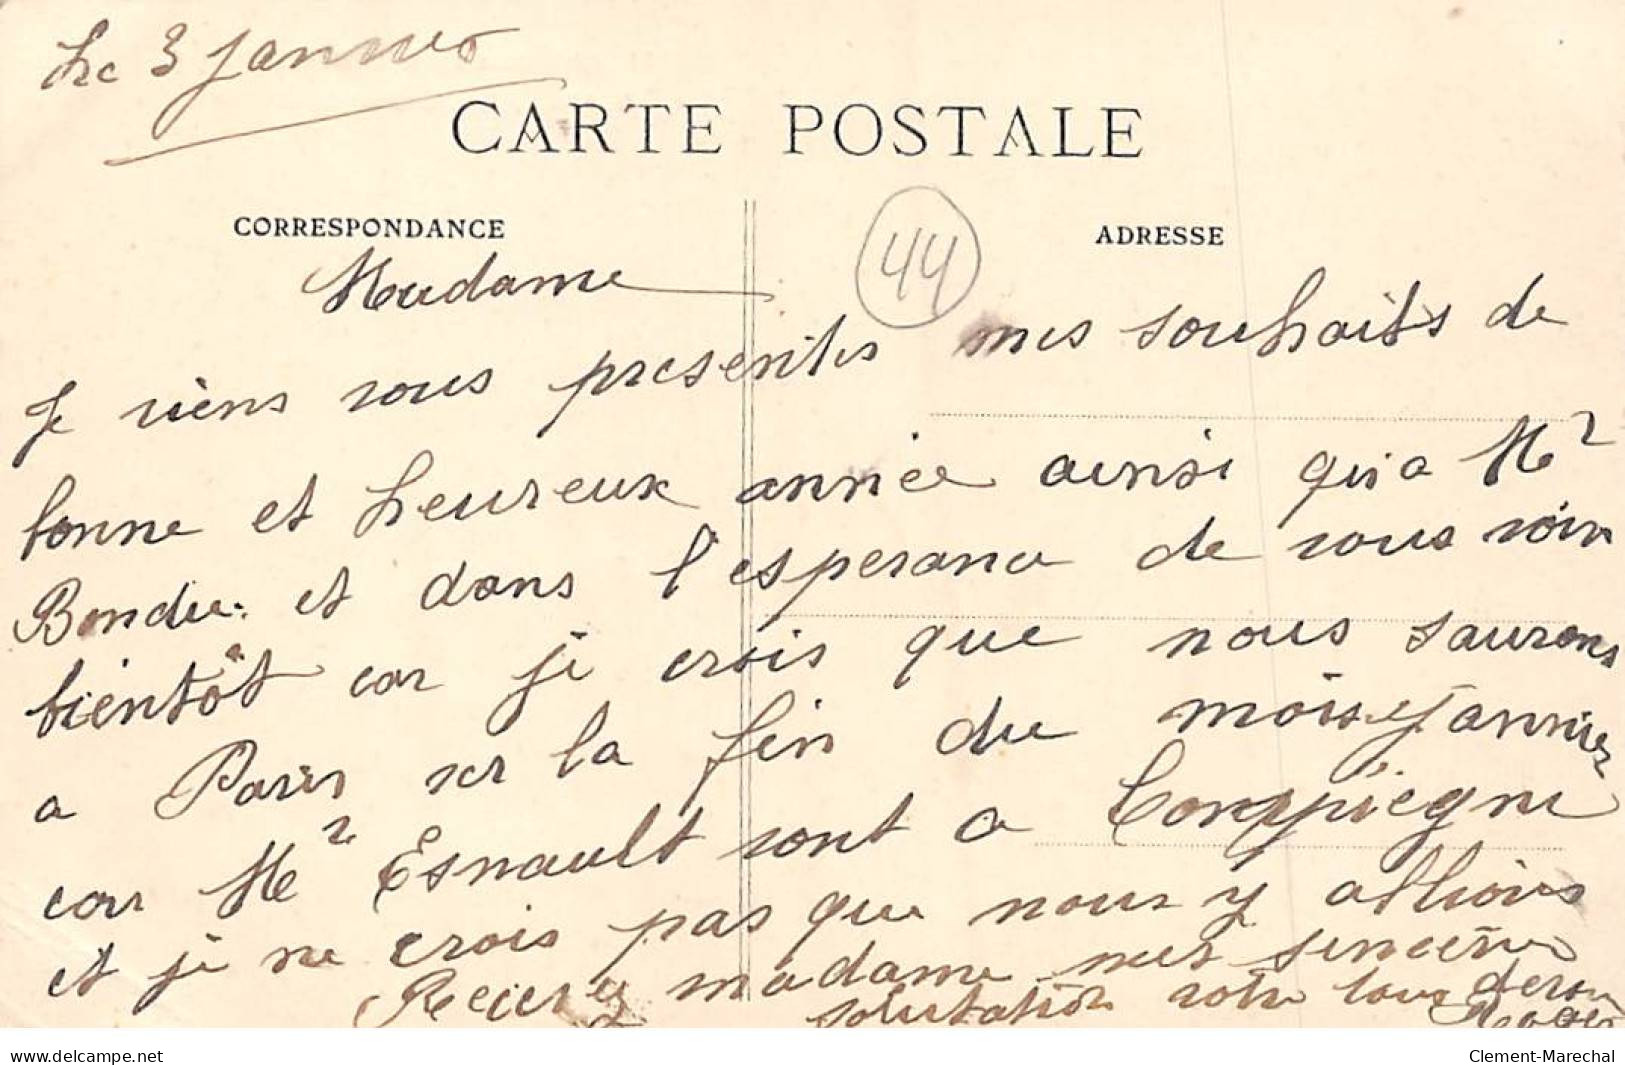 Le 3 Janvier
CARTE POSTALE
CORRESPONDANCE
ADRESSE
44
Madame
Je viens vous presenter mes souhaits de
bonne et heureux année ainsi qu'a Mr
Bondu. et dans l'esperance de vous voir
bientôt car je crois que nous saurons
a Paris ver la fin du mois Janvier
car Mr Esnault sont a Compiègne
et je ne crois pas que nous y allions
Recever madame mes sencère
salutation votre tous
www.delcampe.net
Clement-Marechal